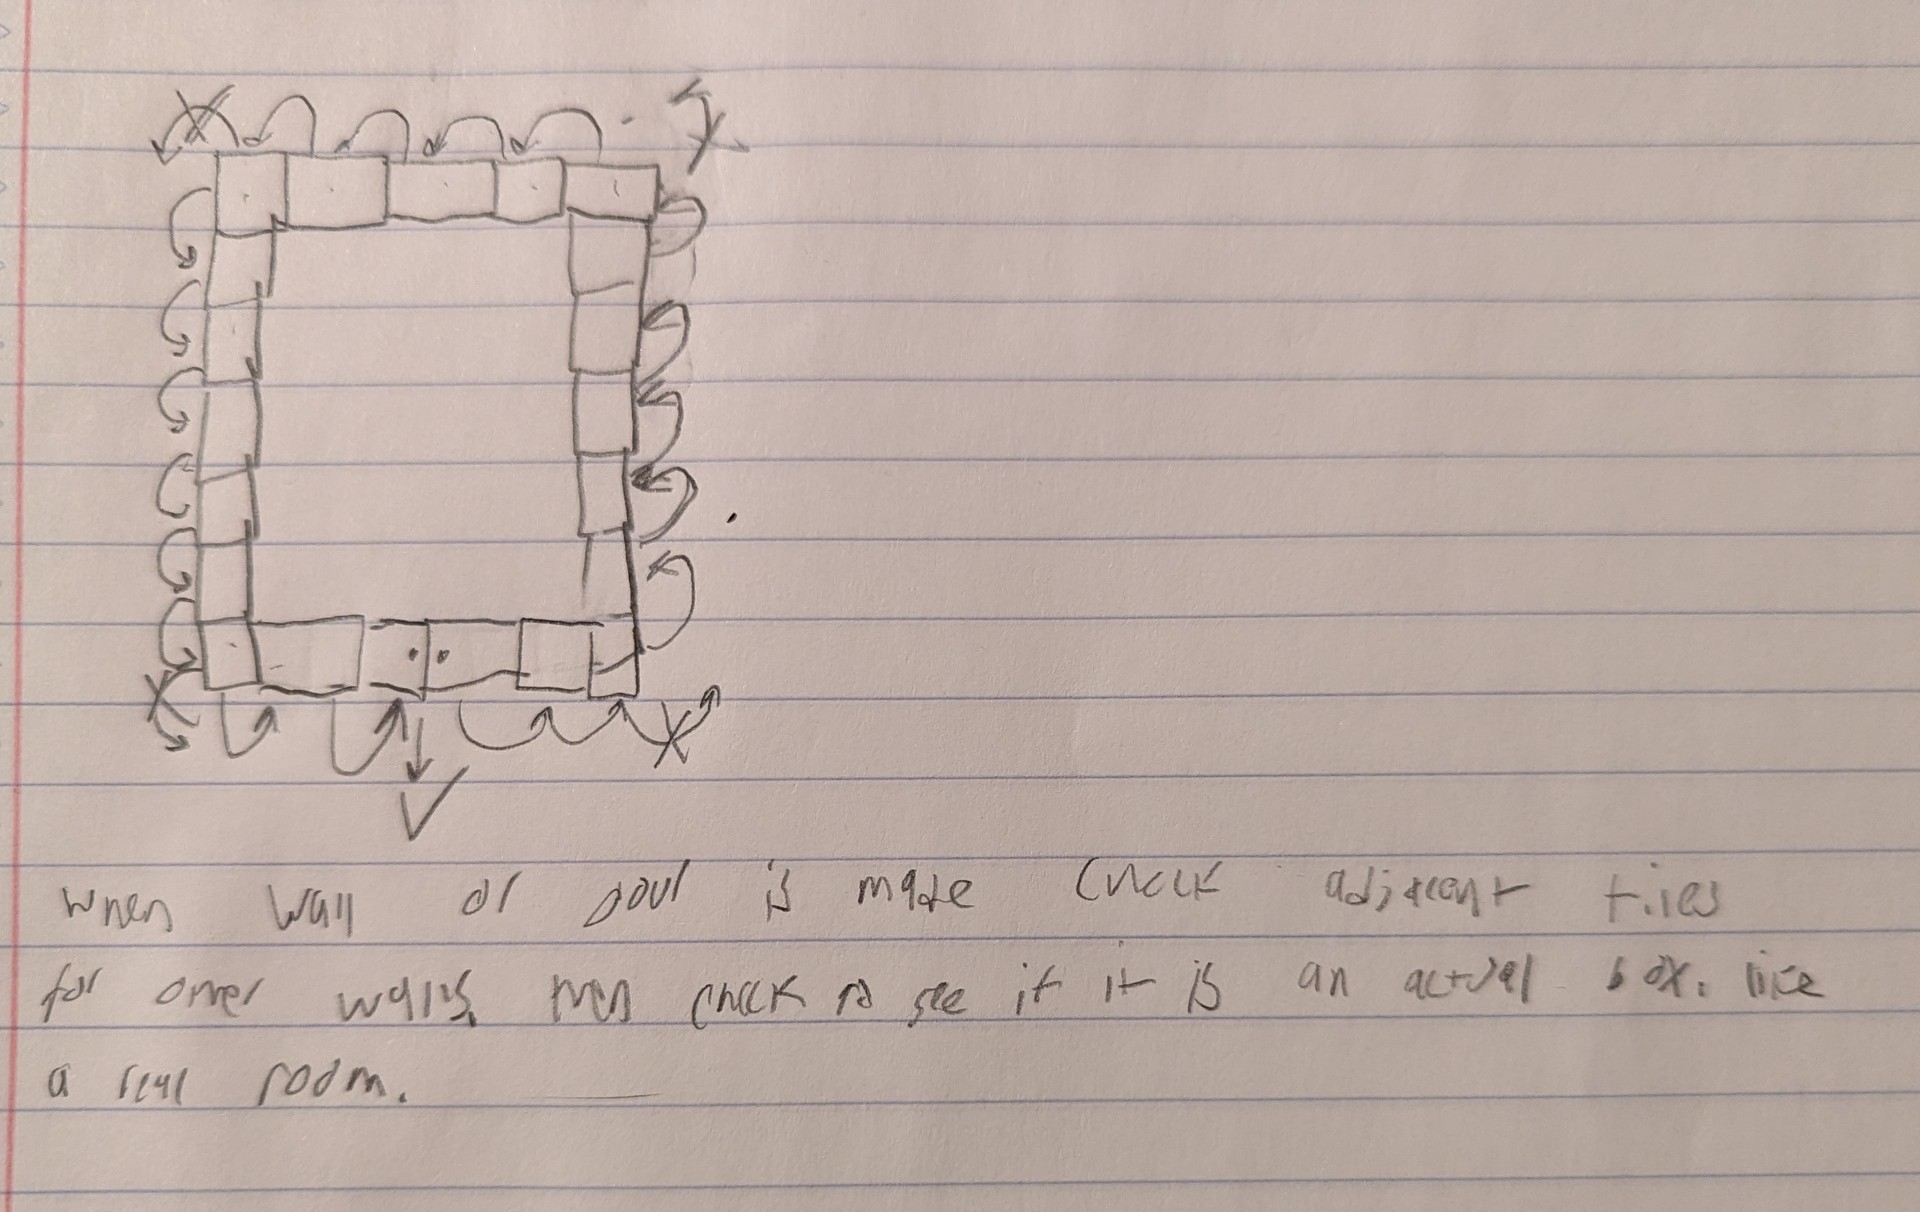 when wall or door is made check adjacent tiles
for other walls, then check to see if it is an actual box. like
a real room.